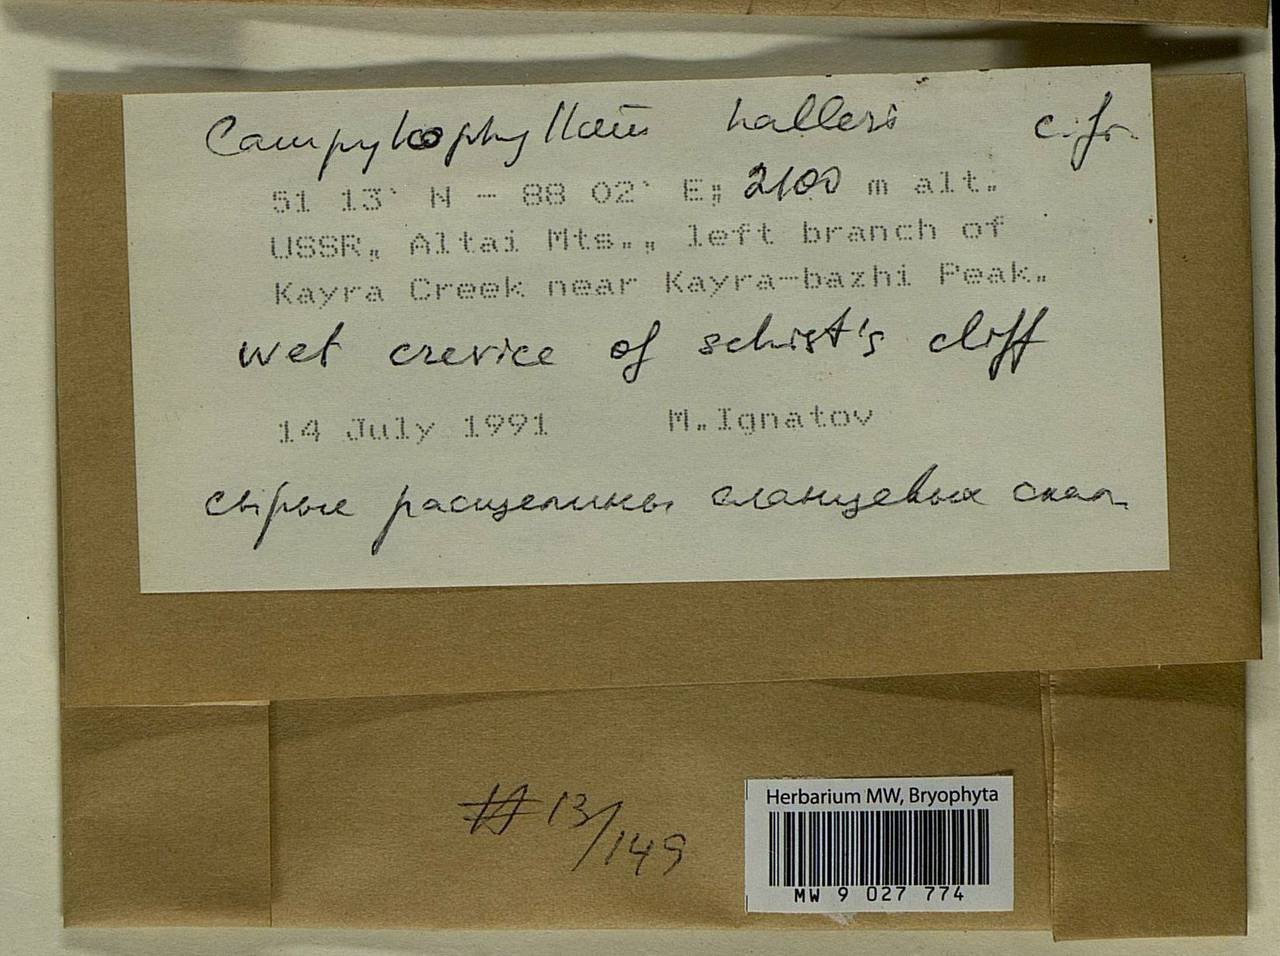 Campylophyllum halleri c. fr.
51 13' N - 88 02' E; 2100 m alt.
USSR, Altai Mts., left branch of
Kayra Creek near Kayra-bazhi Peak.
wet crevice of schist's cliff
14 July 1991 M.Ignatov
сырые расщелины сланцевых скал
# 13/149
Herbarium MW, Bryophyta
MW 9 027 774